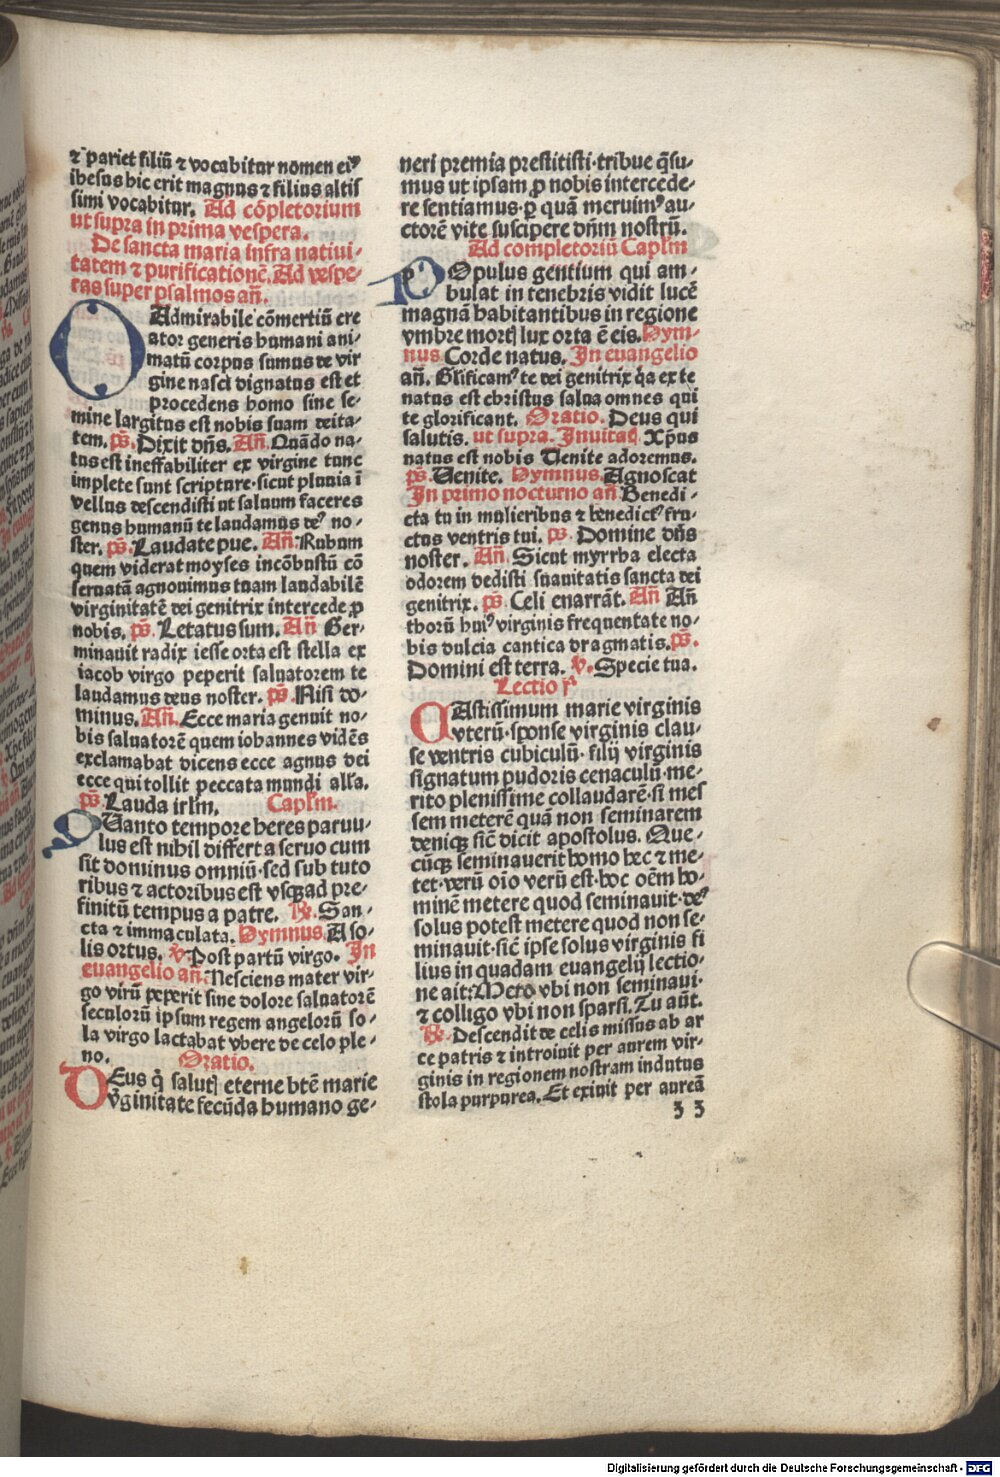 ⁊ pariet filiū ⁊ vocabitur nomen eiꝰ
ihesus hic erit magnus ⁊ filius altis
simi vocabitur. Ad cōpletorium
ut supra in prima vespera.
De sancta maria infra natiui⸗
tatem ⁊ purificationē. Ad vespe⸗
ras super psalmos an̄.
O Admirabile cōmertiū cre
ator generis humani ani⸗
matū corpus sumus de vir
gine nasci dignatus est et
procedens homo sine se⸗
mine largitus est nobis suam deita⸗
tem. ps̄. Dixit dn̄s. An̄. Quādo na⸗
tus est ineffabiliter ex virgine tunc
implete sunt scripture·sicut pluuia ī
vellus descendisti ut saluum faceres
genus humanū te laudamus deꝰ no⸗
ster. ps̄. Laudate pue. An̄. Rubum
quem viderat moyses incōbustū cō
seruatā agnouimus tuam laudabilē
virginitatē dei genitrix intercede ꝓ
nobis. ps̄. Letatus sum. An̄ Ger⸗
minauit radix iesse orta est stella ex
iacob virgo peperit saluatorem te
laudamus deus noster. ps̄. Nisi do⸗
minus. An̄. Ecce maria genuit no⸗
bis saluatorē quem iohannes vidēs
exclamabat dicens ecce agnus dei
ecce qui tollit peccata mundi alła.
ps̄ Lauda irłm. Capłm.
QUanto tempore heres paruu⸗
lus est nihil differt a seruo cum
sit dominus omniū·sed sub tuto
ribus ⁊ actoribus est vsqꝫ ad pre⸗
finitū tempus a patre. ℟. San⸗
cta ⁊ immaculata. Hymnus A so⸗
lis ortus. ℣. Post partū virgo. In
euangelio an̄. Nesciens mater vir⸗
go virū peperit sine dolore saluatorē
seculorū ipsum regem angelorū so⸗
la virgo lactabat vbere de celo ple⸗
no. Oratio.
DEus q̄ saluꝭ eterne btē marie
v̄ginitate fecūda humano ge⸗
neri premia prestitisti·tribue q̄su⸗
mus ut ipsam ꝓ nobis intercede⸗
re sentiamus·ꝑ quā meruimꝰ au⸗
ctorē vite suscipere dn̄m nostrū.
Ad completoriū Capłm
POpulus gentium qui am⸗
bulat in tenebris vidit lucē
magnā habitantibus in regione
vmbre mortꝭ lux orta ē eis. Hym⸗
nus Corde natus. In euangelio
an̄. Glificamꝰ te dei genitrix q̄a ex te
natus est christus salua omnes qui
te glorificant. Oratio. Deus qui
salutis. ut supra. Inuitaꝭ. Xp̄us
natus est nobis Uenite adoremus.
ps̄. Uenite. Hymnus. Agnoscat
In primo nocturno an̄ Benedi⸗
cta tu in mulieribus ⁊ benedictꝰ fru⸗
ctus ventris tui. ps̄. Domine dn̄s
noster. An̄. Sicut myrrha electa
odorem dedisti suauitatis sancta dei
genitrix. ps̄. Celi enarrāt. An̄ An̄
thorū huiꝰ virginis frequentate no⸗
bis dulcia cantica dragmatis. ps̄.
Domini est terra. ℣. Specie tua.
Lectio jᵃ
CAstissimum marie virginis
vterū·sponse virginis clau⸗
se ventris cubiculū·filij virginis
signatum pudoris cenaculū·me⸗
rito plenissime collaudarē·si mes
sem meterē quā non seminarem
deniqꝫ sic̄ dicit apostolus. Que⸗
cūqꝫ seminauerit homo hec ⁊ me⸗
tet·verū oīo verū est·hoc oēm ho⸗
minē metere quod seminauit·deꝰ
solus potest metere quod non se⸗
minauit·sic̄ ipse solus virginis fi
lius in quadam euangelij lectio⸗
ne ait: Meto vbi non seminaui·
⁊ colligo vbi non sparsi. Tu aūt.
℟. Descendit de celis missus ab ar
ce patris ⁊ introiuit per aurem vir⸗
ginis in regionem nostram indutus
stola purpurea. Et exiuit per aureā
ʒ ʒ
Digitalisierung gefördert durch die Deutsche Forschungsgemeinschaft - DFG